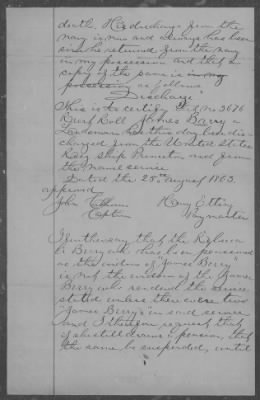 death. His discharge from the
navy is now and always has been
since he returned from the navy
in my possession and that a
copy of the same is in my
possession as follows
"Discharge"
This is to certify that no 3676
Roll James Barry a
Landsman has this day been dis-
charged from the United States
Ship Princeton and from
the naval service.
Dated the 25th August 1863.
approved
John Henry Etting
Captain Paymaster
I further say that the
Berry who has been pensioned
as the widow of "James Berry"
is not the widow of the James
Berry who rendered the service
stated unless there were two
"James Berry's" in said service
and I therefore request that
if she still draws a pension, that
the same be suspended, until